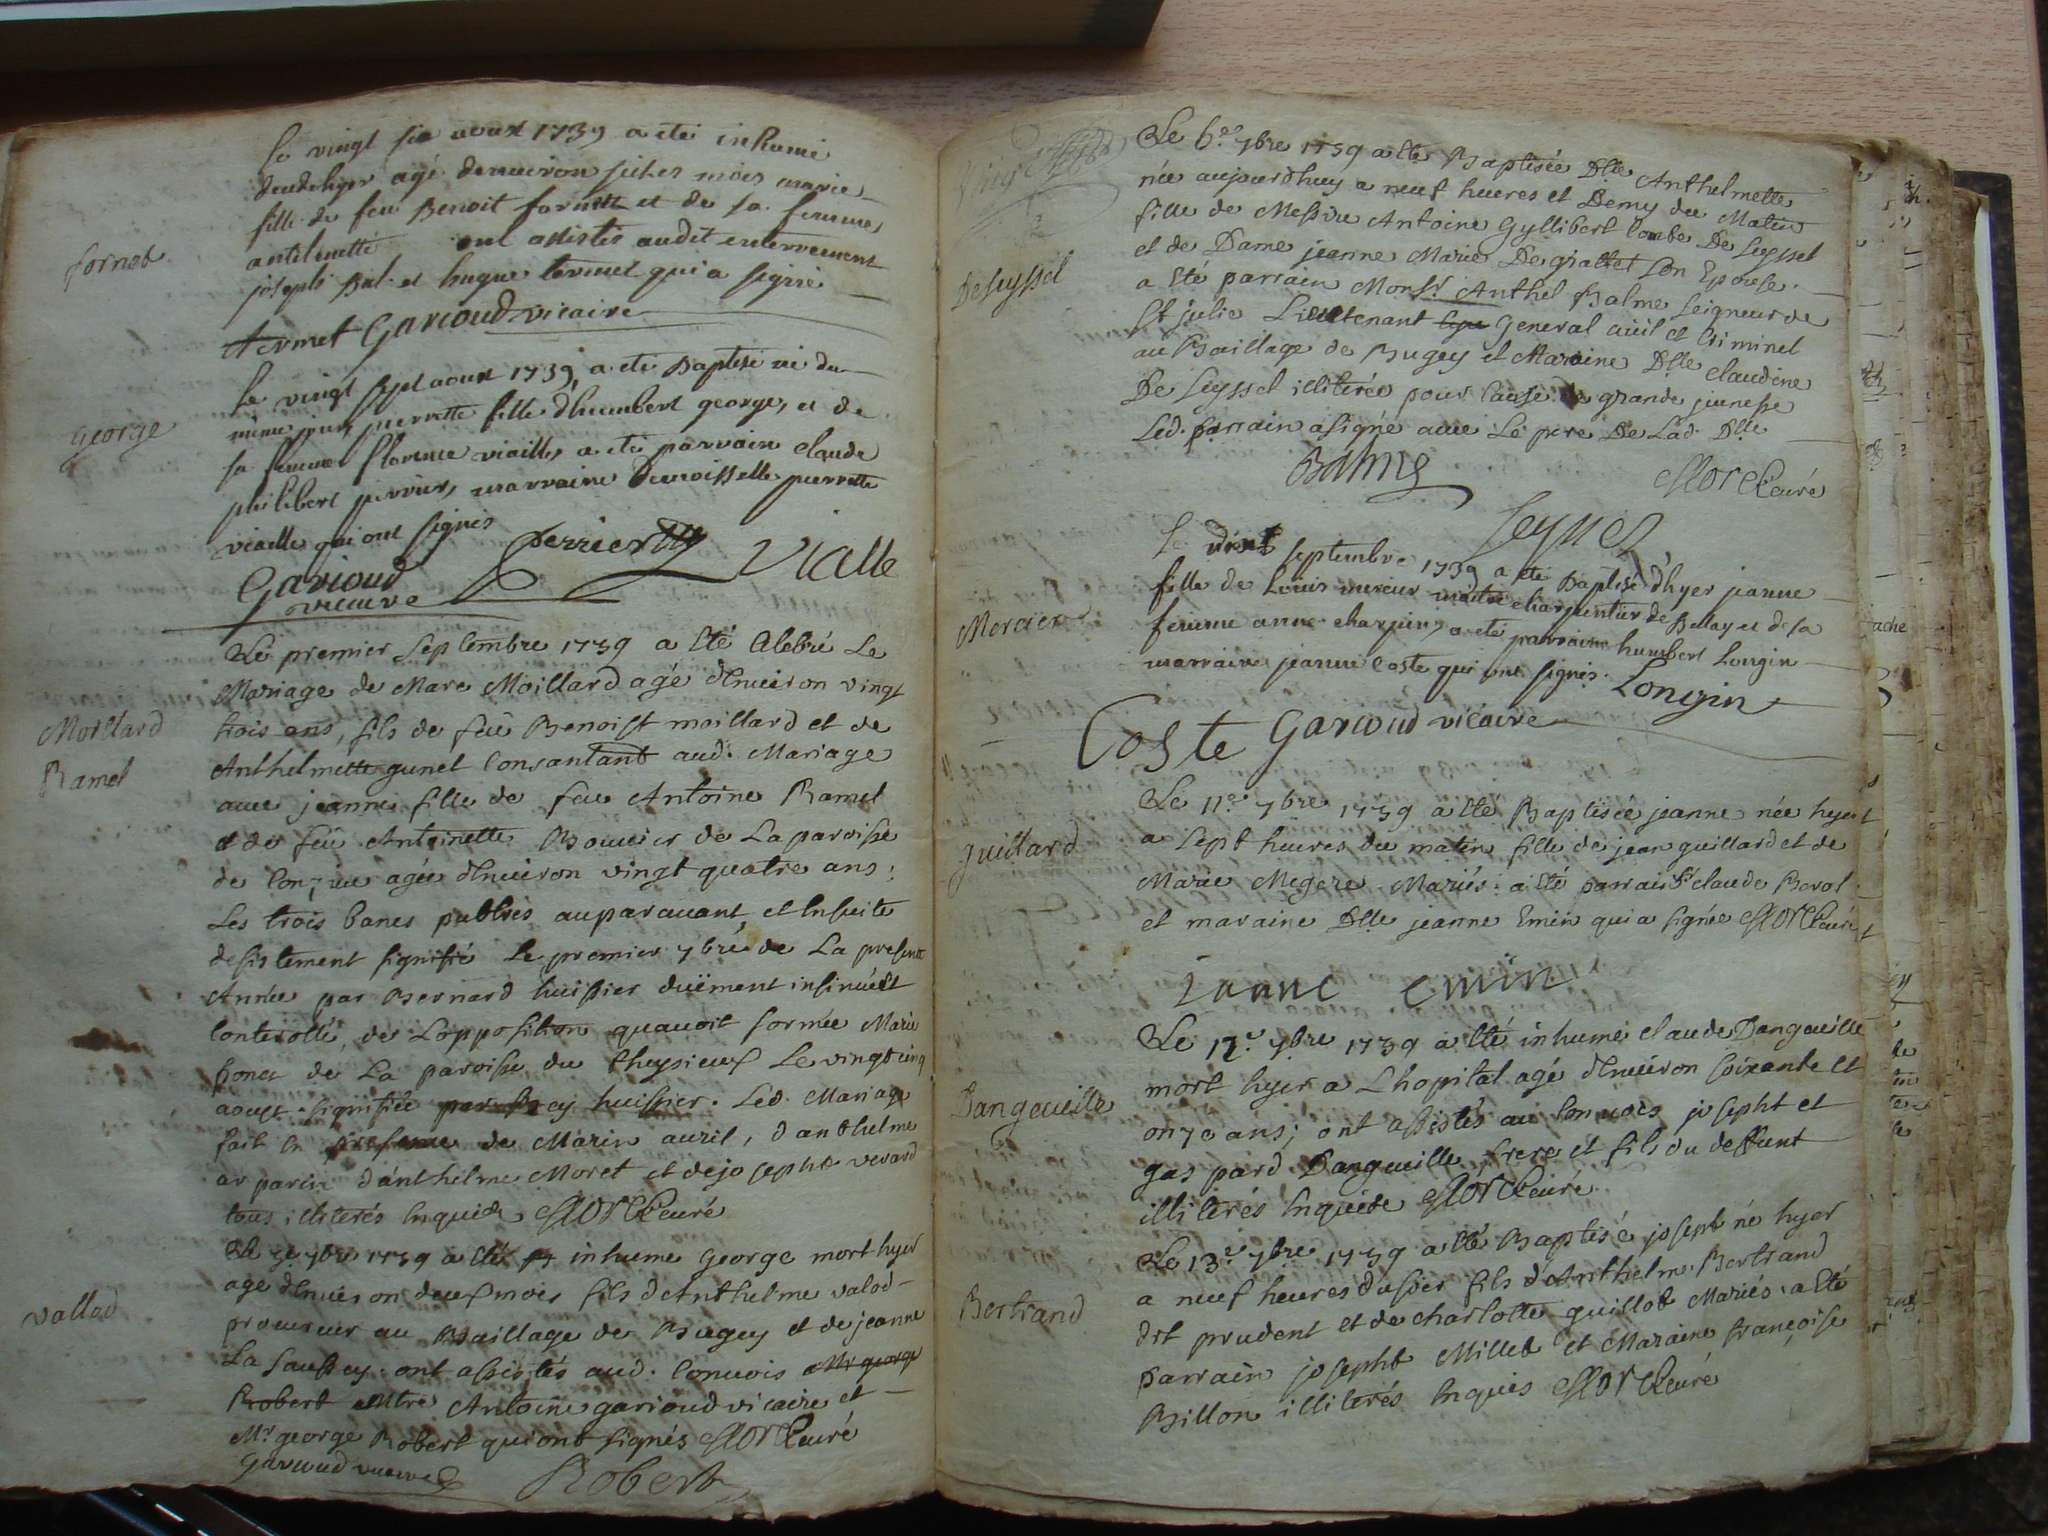 le vingt six aoust 1739 a eté inhumé
fille de feu Benoit fornet et de sa femme
ont assistés audit enterrement
joseph et hugue qui a signé
fornet
Garioud vicaire
le vingt sept aoust 1739 a eté Baptisé né du
george
même jour pierrette fille d'humbert george, et de
sa femme florence vialle, a eté parrain claude
philibert perrier, marraine Demoisselle pierrette
vialle qui ont signés
Perrier
Vialle
Garioud
vicaire
Le premier septembre 1739 a Eté Celebré Le
Mariage de Marc Moillard agé d'Enuiron vingt
Moillard
Ramel
trois ans, fils de feu Benoist moillard et de
Anthelmette gunet Consantant aud. Mariage
auec jeanne fille de feu Antoine Ramel
et de feu Antoinette Bouuier de La paroisse
de Conzieu agée d'Enuiron vingt quatre ans;
Les trois bancs publiés auparauant, et Ensuite
desistement signifié Le premier 7bre de La presente
Année par Bernard huissier duëment insinué et
Conterollé, de L'opposition qu'auoit formée Marie
ponet de La paroisse du Cheysieux Le vingt cinq
aoust signifiée par huissier. Led. Mariage
fait En presence de Marin auril, d'anthelme
parin d'anthelme Moret et de josepht verard
tous illiterés Enquis
curé
7bre 1739 a Eté inhume George mort hyer
vallod
agé d'Enuiron deux mois fils d'Anthelme valod
procureur au Baillage de Bugey et de jeanne
La saussey. ont assistés aud. Conuois Mr george
Robert Mtre Antoine garioud vicaire et
Mr george Robert qui ont signés curé
Garioud vicaire
Robert
Le 6e 7bre 1739 a Eté Baptisée Dlle Anthelmette
née aujourdhuy a neuf heures et Demy du Matin
fille de Messire Antoine Gyllibert Comte De Seyssel
et de Dame jeanne Marie De grattet Son Epouse.
DeSeyssel
a Eté parrain Monsr Anthel Balme Seigneur de
St julie Lieutenant General ciuil et Criminel
au Baillage de Bugey et Maraine Dlle Claudine
De Seyssel illiterée pour Cause de grande jeunesse
Led. parrain a signé auec Le pere De Lad. Dlle
Balme
curé
Seyssel
Le septembre 1739 a eté Baptisé d'hyer jeanne
fille de Louis mercier maitre charpentier de Belley et de sa
Mercier
femme anne charpin, a eté parrain humbert Longin
marraine jeanne Coste qui ont signés.
Longin
Coste
Garioud vicaire
Le 11e 7bre 1739 a Eté Baptisée jeanne née hyer
guillard
a Sept heures du matin fille de jean guillard et de
Marie Megere Mariés: a Eté parrain Sr claude Berol
et maraine Dlle jeanne Emin qui a signée curé
janne emin
Le 12e 7bre 1739 a Eté inhumé claude Dangeuille
Dangeuille
mort hyer a L'hopital agé d'Enuiron soixante et
onze ans; ont assistés au Conuoes josepht et
gaspard Dangeuille frere et fils du deffunt
illiterés Enquis curé
Le 13e 7bre 1739 a Eté Baptisé josept né hyer
Bertrand
a neuf heures du soier fils d'Anthelme Bertrand
dit prudent et de charlotte guillot Mariés. a Eté
parrain josepht Millet et Maraine françoise
Billon illiterés Enquis curé